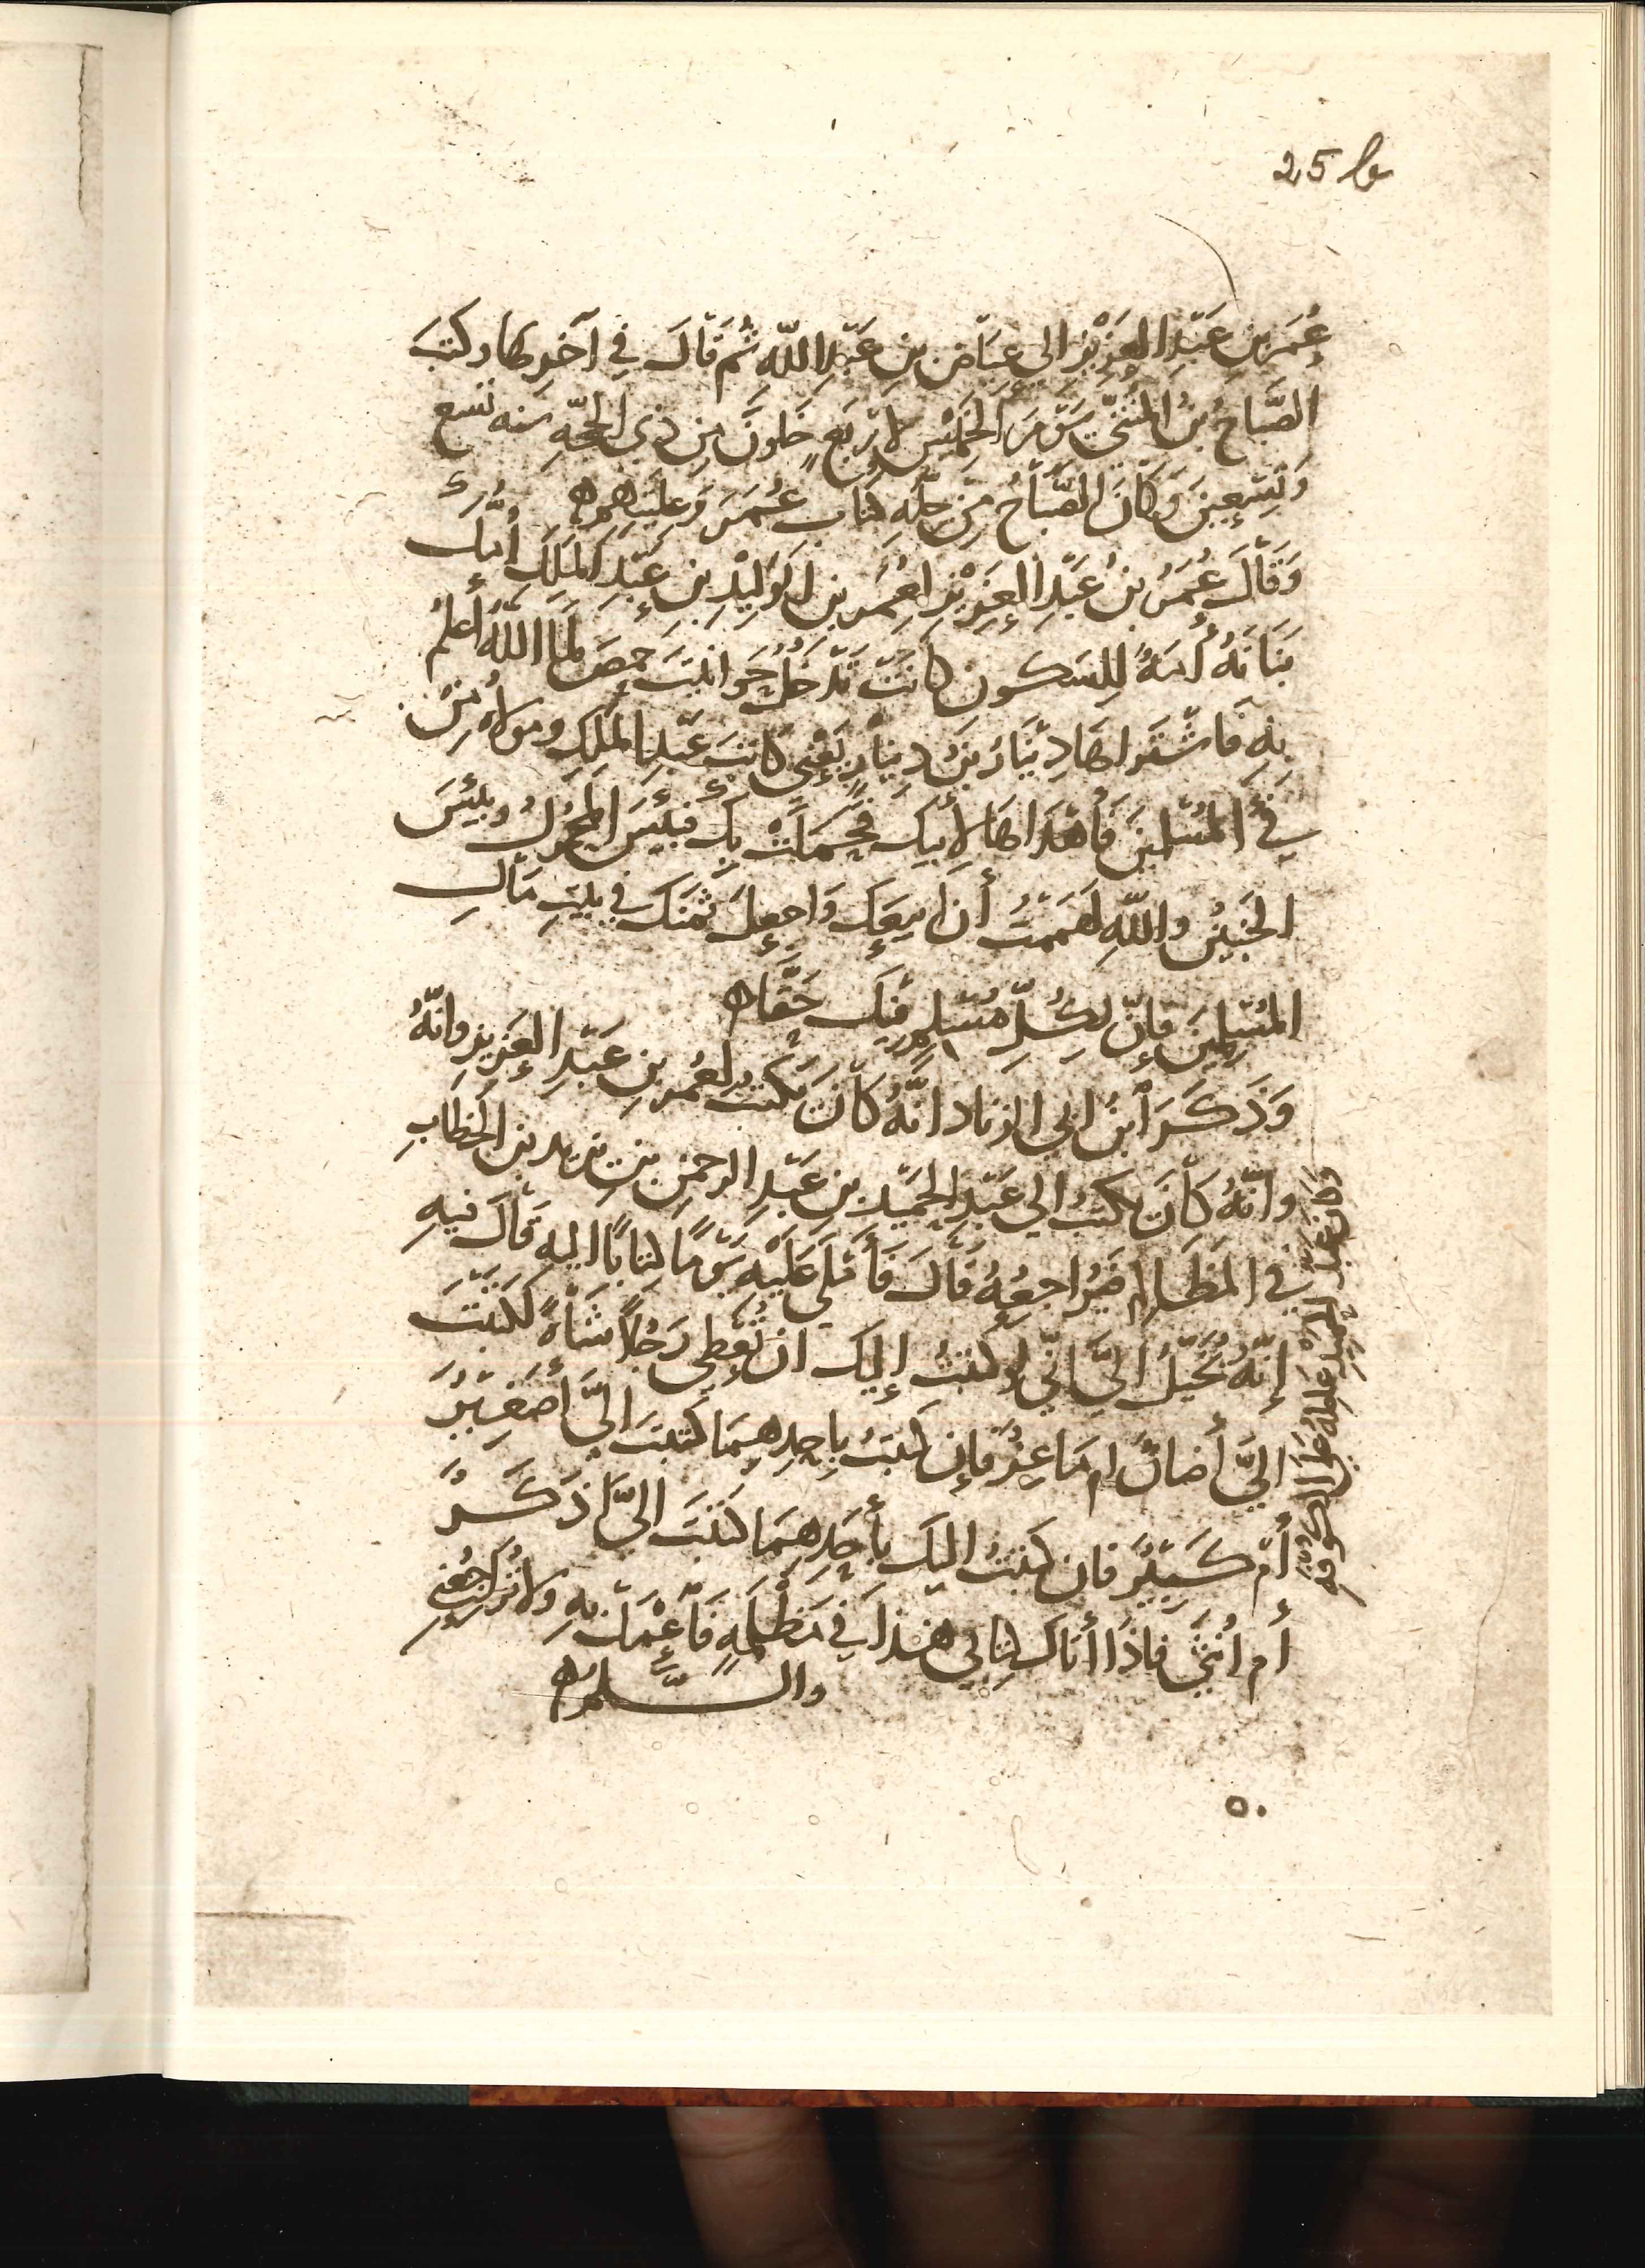 25 b
عُمَرَ بنِ عَبْدِ العَزِيْزِ الى عِيَاضِ بنِ عَبْدِ اللّٰه ثُمَّ قَالَ فِي آخرِها وكتبَ
الصَّبَاحُ بنُ المُثَنَّى يَوْمَ الخَمِيْسِ لأرْبَعٍ خَلَونَ مِن ذي الحجّهِ سنه تسع
وَتِسْعِينَ وَكَانَ الصَّبَاحُ مِن حَمَلَهِ كتاب عُمَرَ وَعِلْيَتِهم ه
وَقَالَ عُمَرُ بنُ عَبْدِ العَزِيْزِ لعُمَرَ بنِ الوَلِيْدِ بنِ عَبْدِ المَلِكِ أُمُّكَ
بَنَانَهُ أَمَهُ لِلسَكونِ كانَتْ تَدْخُلُ حَوانيتَ حمصَ لمَا اللّٰهُ أَعلَمُ
بِهِ فَاشْتَراهَا دِيْنَارُ بنُ دِينَارٍ يَعْنِي كاتِبَ عَبْدِ المَلِكِ ومولاه مِنْ
فَيْءِ المُسْلِمينَ فَأَهْدَاهَا لأَبيكَ فحَمَلَتْ بِكَ فبئيسَ المحمُولُ وبئيسَ
الجَنِيْنُ واللّٰهِ لهَمَمْتُ أن ابيعَكَ وَاجعلَ ثَمَنَكَ في بيتِ مَالِ
المُسْلِمِينَ فإنَّ لِكُلِّ مُسْلِمٍ فِيكَ حَقًّا ه
وَذَكَرَ ابنُ ابي الزناد انّهُ كَانَ يَكتبُ لعُمر بنِ عَبْدِ العَزِيزِ وانّهُ
وانّهُ كَانَ يكتبُ الى عَبْدِ الحَمِيْدِ بنِ عَبْدِ الرحمٰنِ بنِ زيد بن الخطابِ
في المَظَالِمِ فيُرَاجِعُهُ قَالَ فَأَمْلَى عَلَيْهِ يَوْمًا كتابًا اليه قَالَ فيهِ
إنّهُ يُخَيَّلُ اليَّ انّي لو كتبتُ إليكَ ان تُعْطِي رَجُلاً شَاةً لكتبْتَ
اليَّ أضانٌ ام مَاعِزٌ فإن كتبتُ بِاحدِهِمَا كتبتَ اليَّ أصَغِيْرٌ
أم كَبِيْرٌ فان كتبتُ اليكَ بأحَدِهِمَا كتبتَ اليَّ اذكَرٌ
أم أُنثَى فاذَا أتاكَ كتابي هذا في مَظْلِمَهٍ فَاعْمَلْ بهِ ولا تُرَاجِعْني
والسَّلم ه
وكان عَبْدُ الحميدِ عَامِلَهُ عَلى الكوفهِ